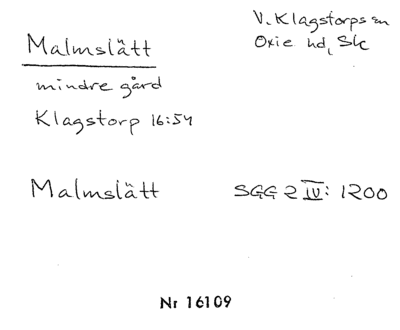 Malmslätt
V. Klagstorps sn
Oxie hd, Sk
mindre gård
Klagstorp 16:54
Malmslätt SGG 2 IV: 1200
Nr 16109